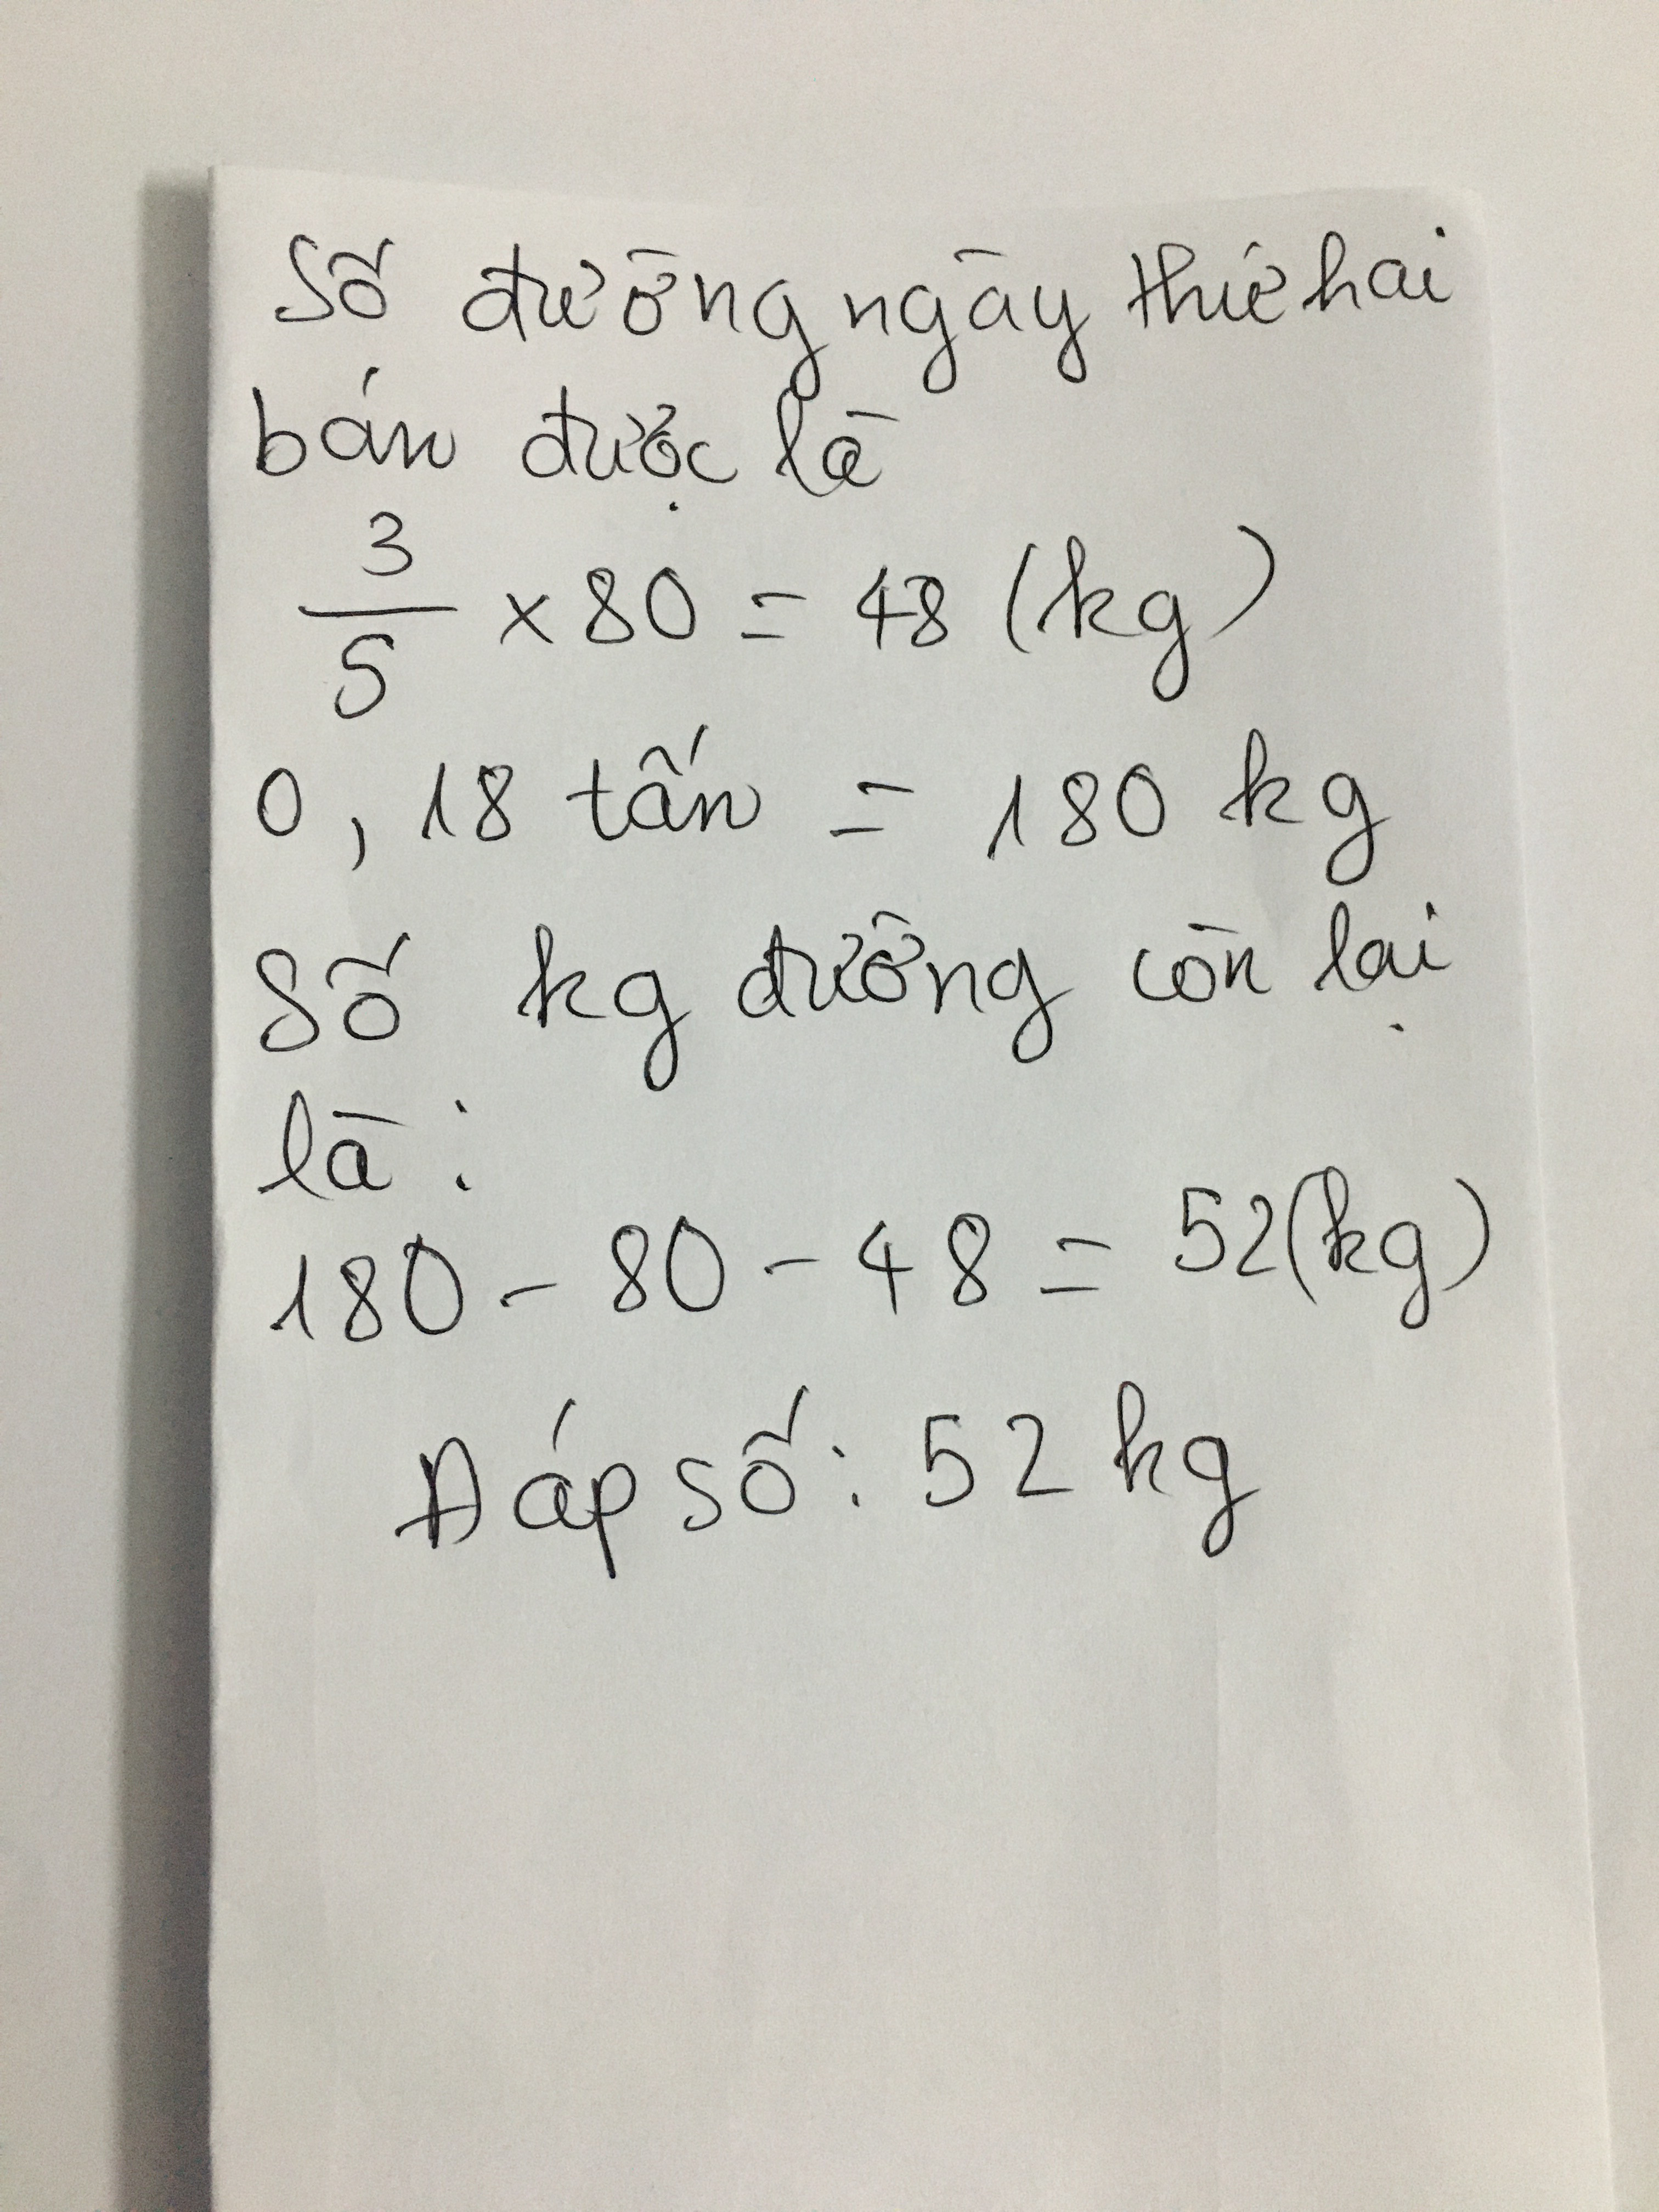 Số đường ngày thứ hai
bán được là
3/5 x 80 = 48 (kg)
0,18 tấn = 180 kg
Số kg đường còn lại
là :
180 - 80 - 48 = 52(kg)
Đáp số : 52 kg